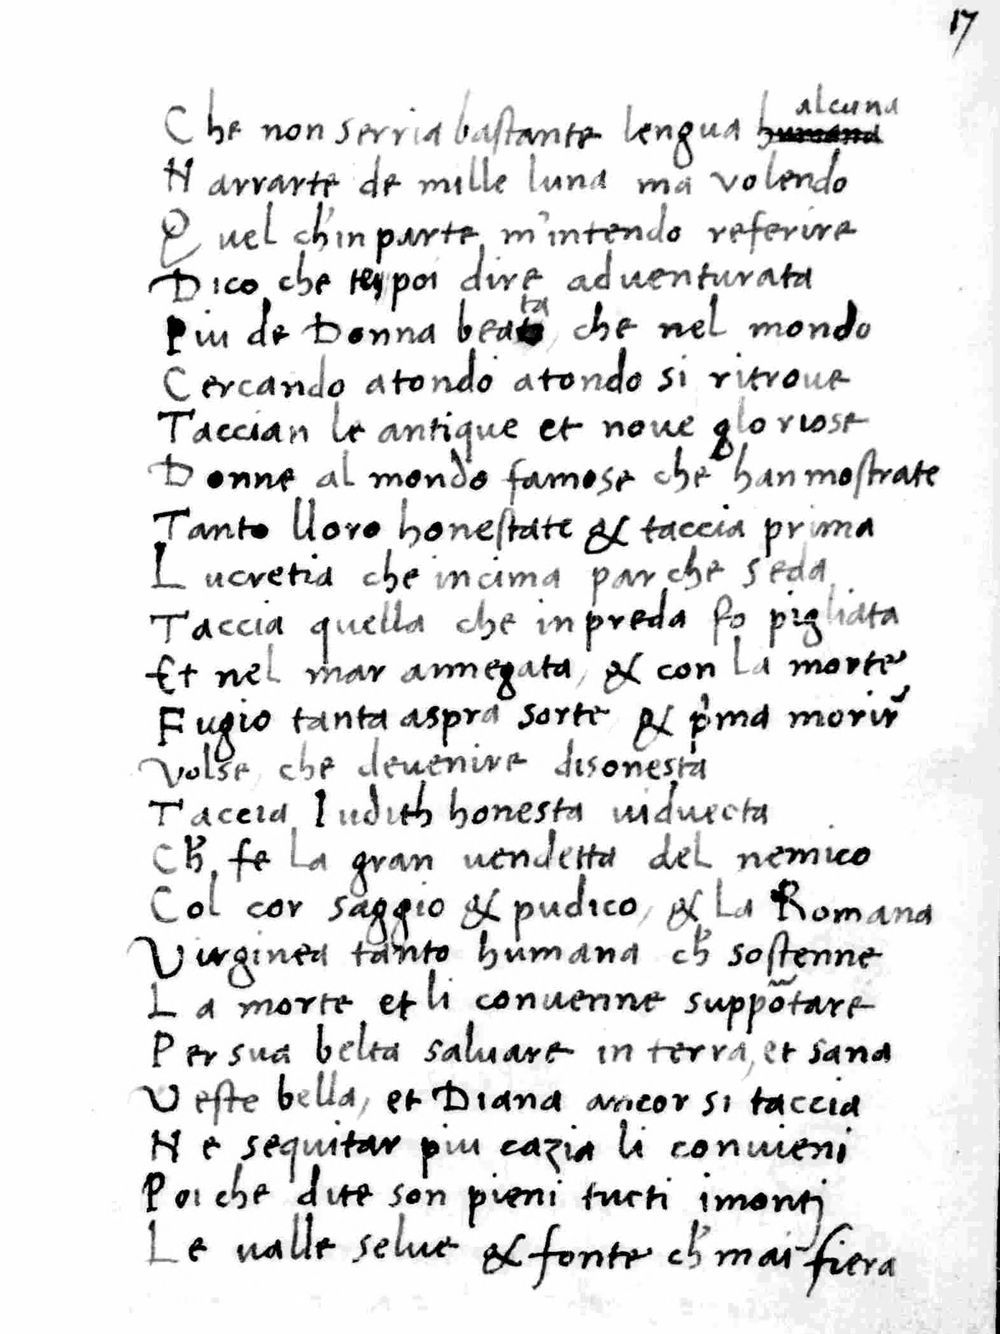 17
Che non serria bastante lengua humana alcuna
Narrarte de mille luna ma volendo
Quel ch'in parte m'intendo referire
Dico che poi dire aduenturata
Piu de Donna beata, che nel mondo
Cercando atondo atondo si ritroue
Taccian le antique et noue gloriose
Donne al mondo famose che han mostrate
Tanto lloro honestate & taccia prima
Lucretia che in cima par che seda
Taccia quella che in preda fo pigliata
Et nel mar annegata, & con la morte
Fugio tanta aspra sorte & p'ma morir
Volse che deuenire disonesta
Taccia Iudith honesta uiduecta
Ch' fe la gran uendetta del nemico
Col cor saggio & pudico, & la Romana
Virginea tanto humana ch' sostenne
La morte et li conuenne suppõtare
Per sua belta saluare in terra, et sana
Veste bella, et Diana ancor si taccia
Ne sequitar piu cazia li conuieni
Poi che dite son pieni tucti imontj
Le ualle selue & fonte ch' mai fiera